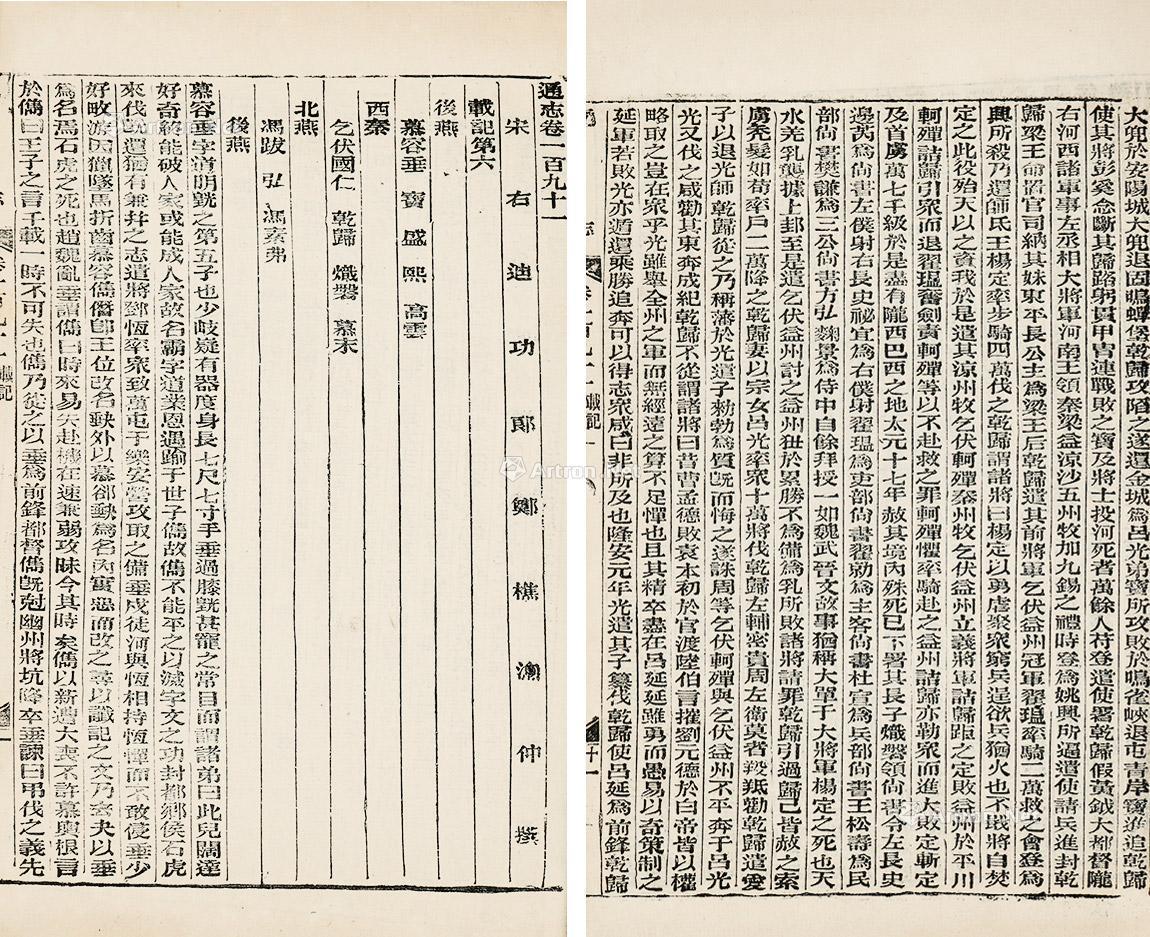 通志卷一百九十一
宋右迪功郎鄭樵漁仲撰
載記第六
後燕
慕容垂 寶 盛 熙 高雲
西秦
乞伏國仁 乾歸 熾磐 慕末
北燕
馮跋 弘 馮素弗
後燕
慕容垂字道明皝之第五子也少岐嶷有器度身長七尺七寸手垂過膝皝甚寵之常目而謂諸弟曰此兒闊達
好奇終能破人家或能成人家故名霸字道業恩遇踰于世子儁故儁不能平之以滅宇文之功封都鄉侯石虎
來伐旣還猶有兼并之志遣將鄧恆率眾致萬屯于樂安營攻取之備垂戍徒河與恆相持恆憚而不敢侵垂少
好畋游因獵墜馬折齒慕容儁僭卽王位改名缺外以慕郤缺爲名內實惡而改之尋以讖記之文乃去夬以垂
爲名焉石虎之死也趙魏亂垂謂儁曰時來易失赴機在速兼弱攻昧今其時矣儁以新遭大喪不許慕輿根言
於儁曰王子之言千載一時不可失也儁乃從之以垂爲前鋒都督儁旣剋幽州將坑降卒垂諫曰弔伐之義先
大兜於安陽城大兜退固鳴蟬堡乾歸攻陷之遂還金城爲呂光弟寶所攻敗於鳴雀峽退屯青岸寶進追乾歸
使其將彭奚念斷其歸路躬貫甲冑連戰敗之寶及將士投河死者萬餘人苻登遣使署乾歸假黃鉞大都督隴
右河西諸軍事左丞相大將軍河南王領秦梁益涼沙五州牧加九錫之禮時登爲姚興所逼遣使請兵進封乾
歸梁王命置官司納其妹東平長公主爲梁王后乾歸遣其前將軍乞伏益州冠軍翟瑥率騎二萬救之會登爲
興所殺乃還師氐王楊定率步騎四萬伐之乾歸謂諸將曰楊定以勇虐聚眾窮兵逞欲兵猶火也不戢將自焚
定之此役殆天以之資我於是遣其涼州牧乞伏軻殫秦州牧乞伏益州立義將軍詰歸距之定敗益州於平川
軻殫詰歸引眾而退翟瑥奮劍責軻殫等以不赴救之罪軻殫懼率騎赴之益州詰歸亦勒眾而進大敗定斬定
及首虜萬七千級於是盡有隴西巴西之地太元十七年赦其境內殊死已下署其長子熾磐領尙書令左長史
邊芮爲尙書左僕射右長史祕宜爲右僕射翟瑥爲吏部尙書翟勍爲主客尙書杜宣爲兵部尙書王松壽爲民
部尙書樊謙爲三公尙書方弘麴景爲侍中自餘拜授一如魏武晉文故事猶稱大單于大將軍楊定之死也天
水羌乳襲據上邽至是遣乞伏益州討之益州狃於累勝不爲備爲乳所敗諸將請罪乾歸引過歸己皆赦之索
虜禿髮如苟率戶二萬降之乾歸妻以宗女呂光率眾十萬將伐乾歸左輔密貴周左衛莫者羖羝勸乾歸遣愛
子以退光師乾歸從之乃稱藩於光遣子勑勃爲質旣而悔之遂誅周等乞伏軻殫與乞伏益州不平奔于呂光
光又伐之咸勸其東奔成紀乾歸不從謂諸將曰昔曹孟德敗袁本初於官渡陸伯言摧劉元德於白帝皆以權
略取之豈在眾乎光雖舉全州之軍而無經遠之算不足憚也且其精卒盡在呂延延雖勇而愚易以奇策制之
延軍若敗光亦遁還乘勝追奔可以得志眾咸曰非所及也隆安元年光遣其子纂伐乾歸使呂延爲前鋒乾歸